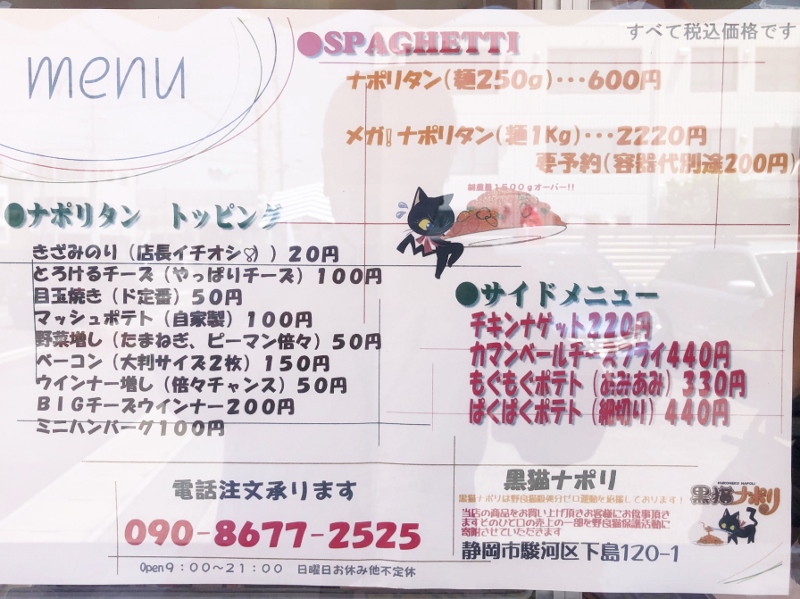 menu
すべて税込価格です
●SPAGHETTI
ナポリタン(麺250g)・・・600円
メガ!ナポリタン(麺1Kg)・・・2220円
要予約(容器代別途200円)
総重量1500gオーバー!!
●ナポリタン トッピング
きざみのり(店長イチオシ♡)20円
とろけるチーズ(やっぱりチーズ)100円
目玉焼き(ド定番)50円
マッシュポテト(自家製)100円
野菜増し(たまねぎ、ピーマン倍々)50円
ベーコン(大判サイズ2枚)150円
ウインナー増し(倍々チャンス)50円
BIGチーズウインナー200円
ミニハンバーグ100円
●サイドメニュー
チキンナゲット220円
カマンベールチーズフライ440円
もぐもぐポテト(あみあみ)330円
ぱくぱくポテト(細切り)440円
電話注文承ります
090-8677-2525
Open9:00~21:00 日曜日お休み他不定休
黒猫ナポリ
黒猫ナポリは野良猫殺処分ゼロ運動を応援しております!
当店の商品をお買い上げ頂きお客様にお食事頂き
ますそのひと口の売上の一部を野良猫保護活動に
寄附させていただきます
静岡市駿河区下島120-1
KURONEKO NAPOLI
黒猫ナポリ